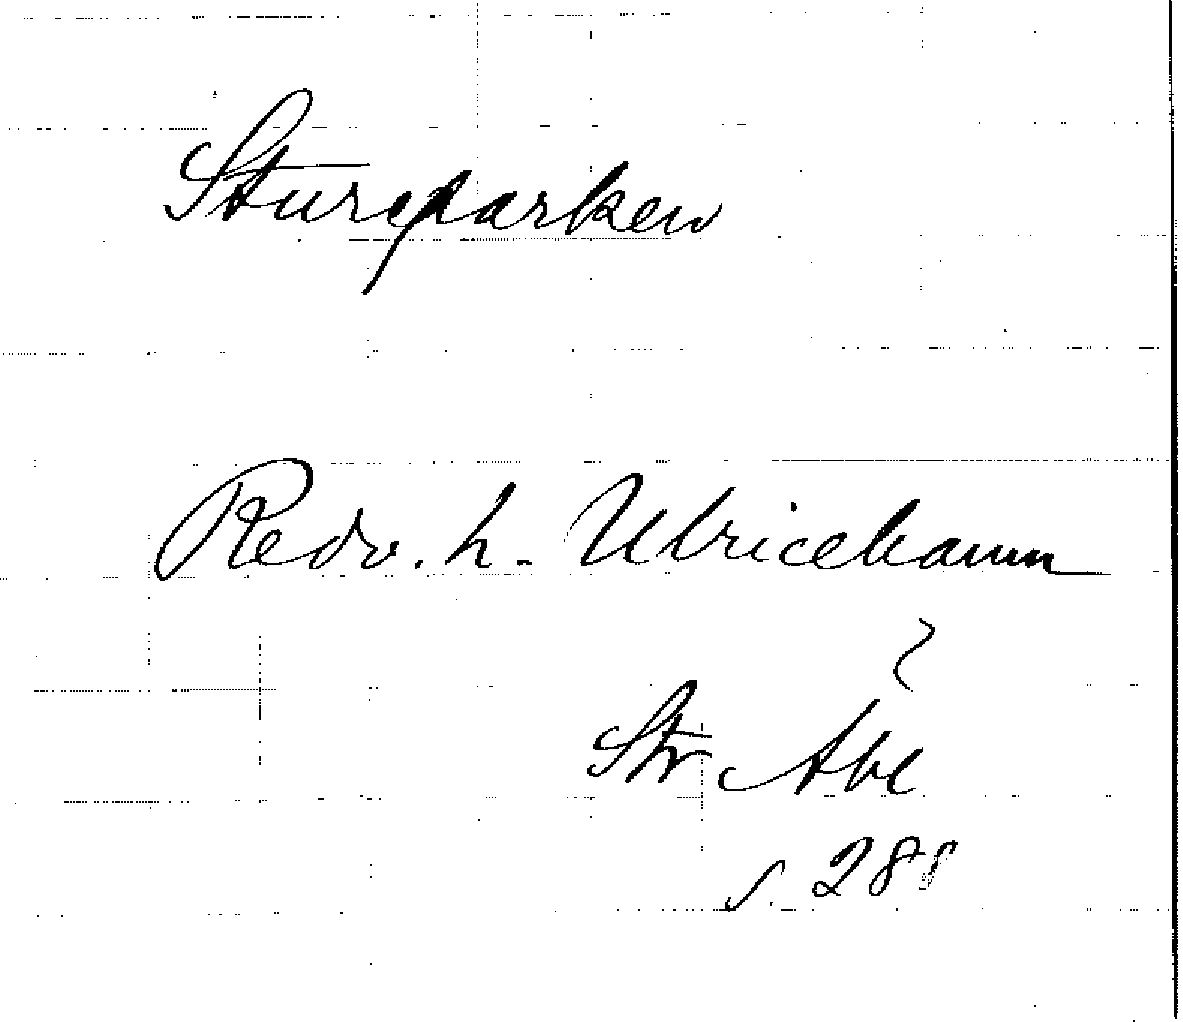 Stureparken
Redv. h. Ulricehamn
Str Abe
s. 288